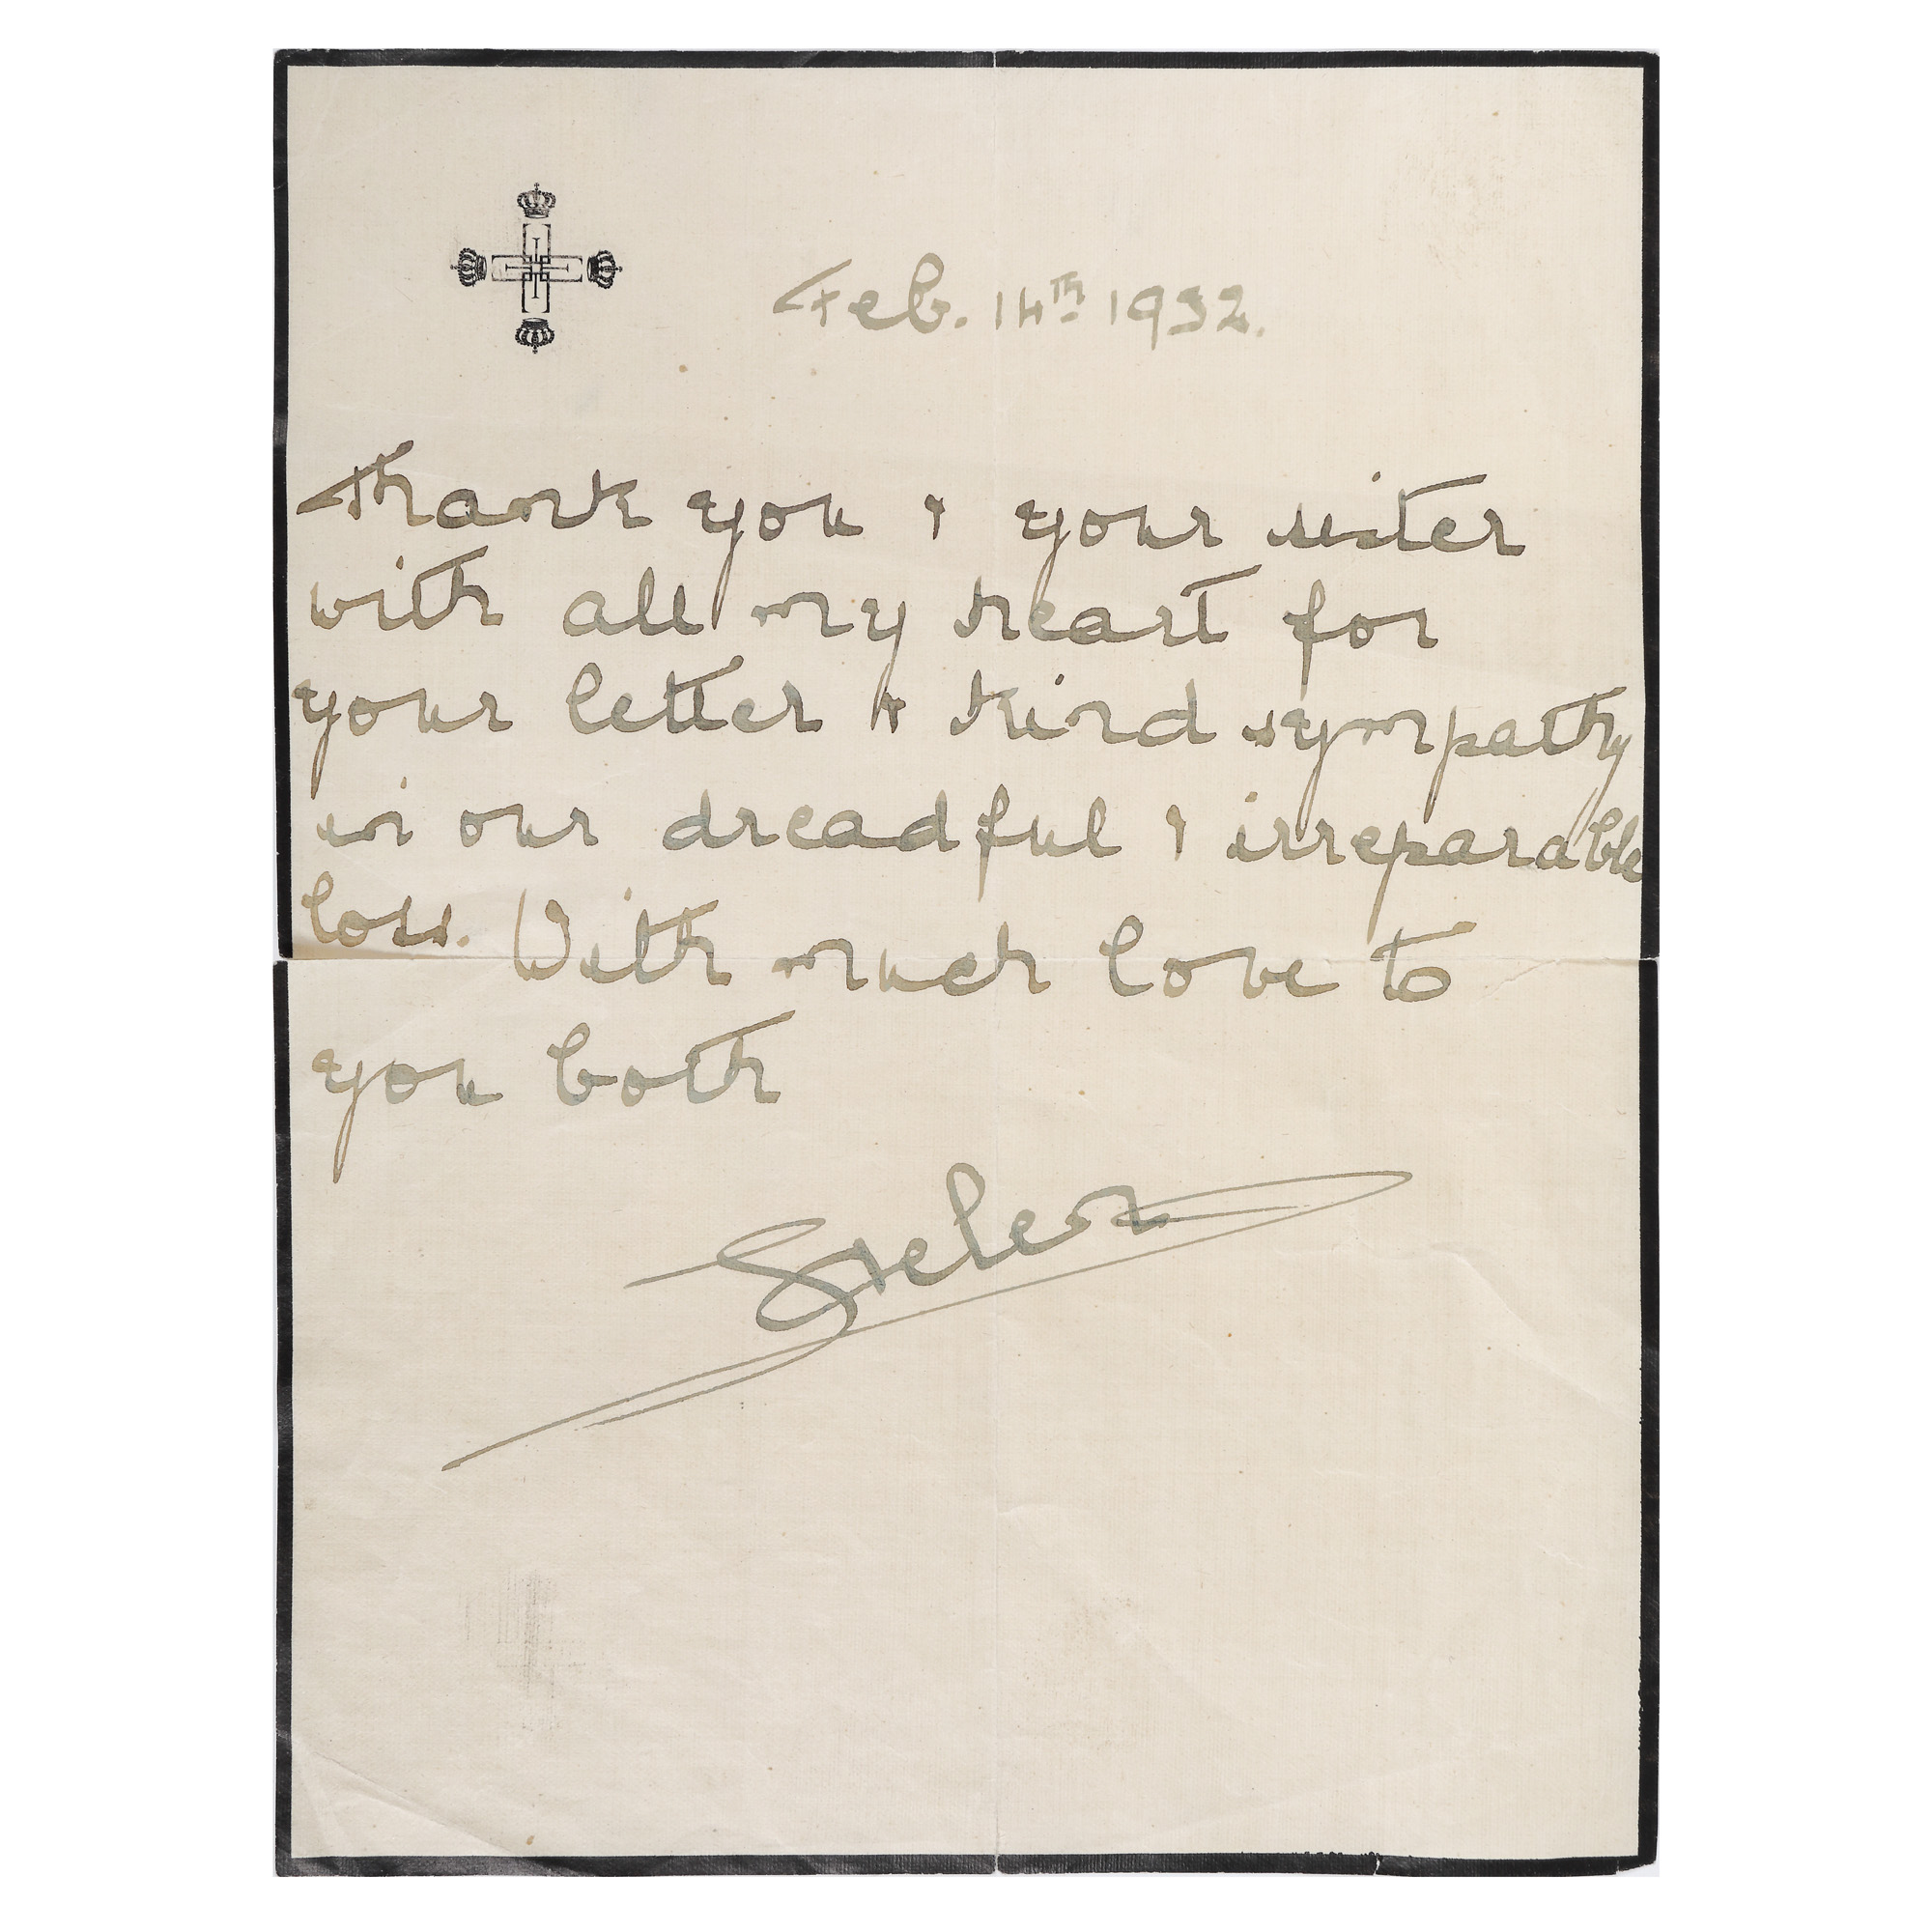 Feb. 14th 1932.
Thank you & your sister
with all my heart for
your letter & kind sympathy
in our dreadful & irreparable
loss. With much love to
you both
Helen